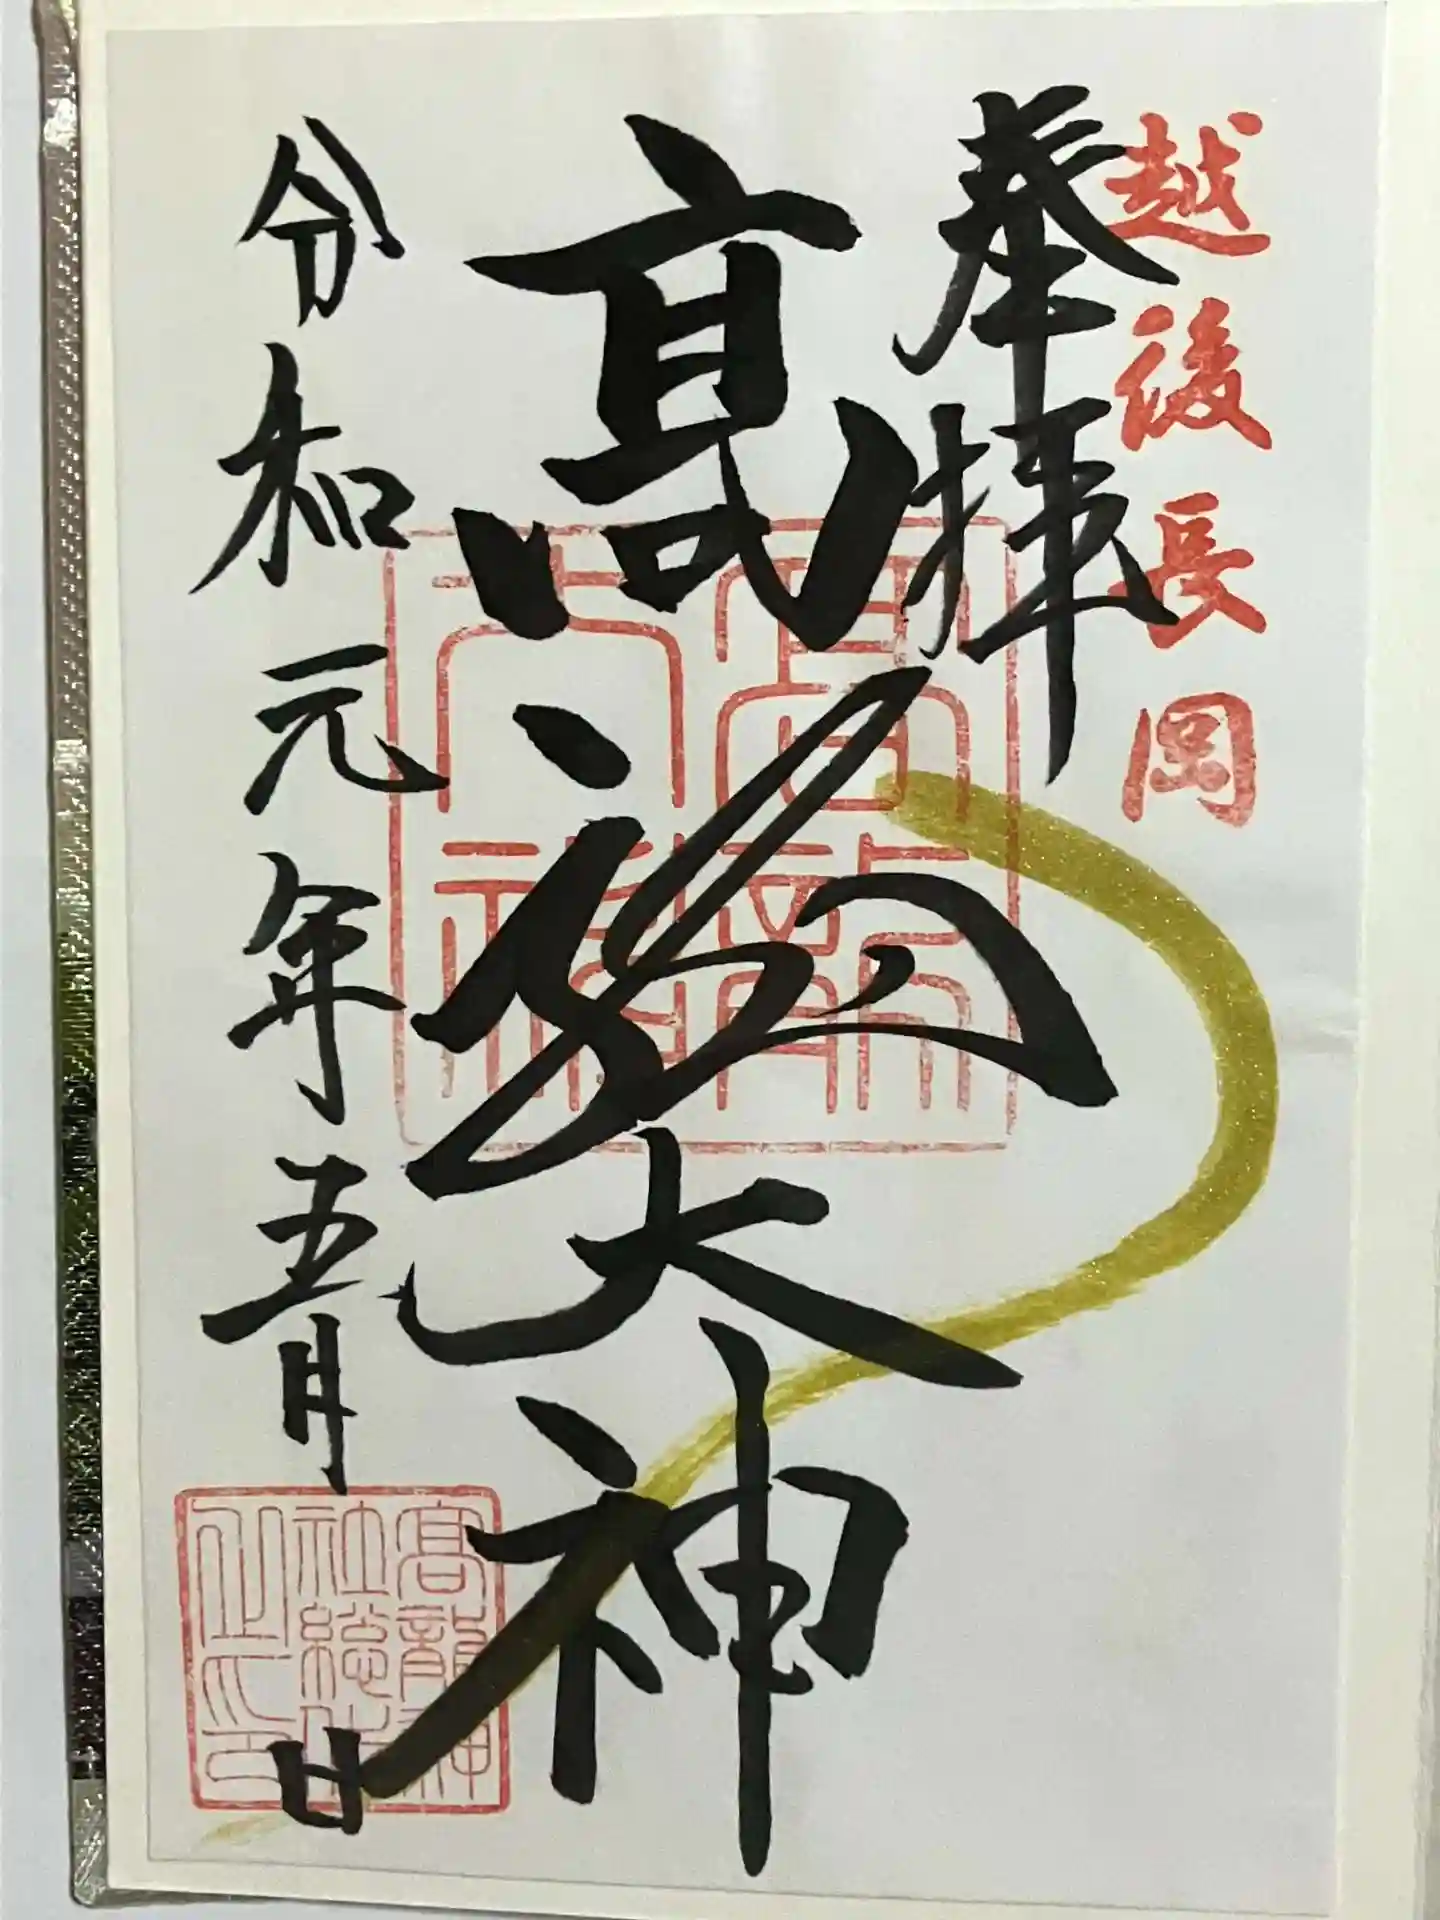 越後長岡
奉拝
高龍大神
令和元年五月 日
高龍大神
高龍神社総代之印